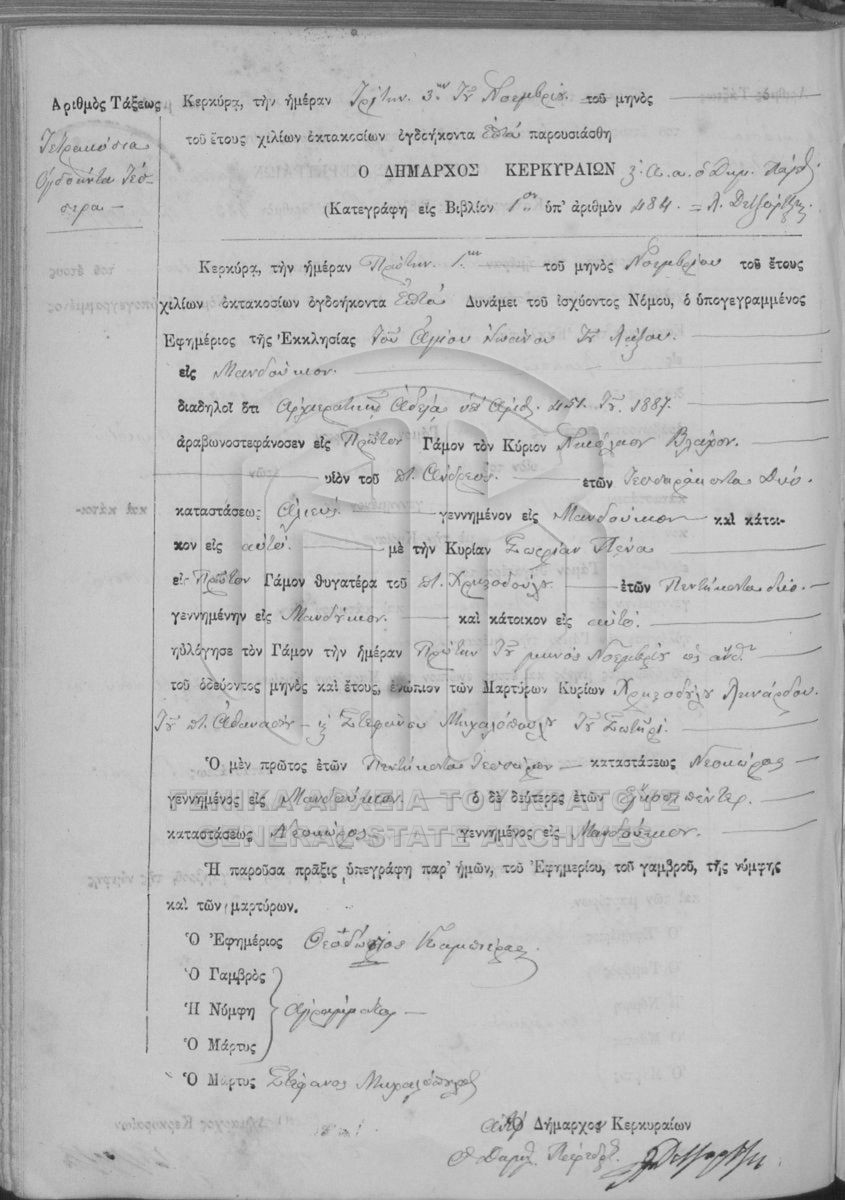 Ἀριθμὸς Τάξεως
Τετρακόσια
Ὀγδοήκοντα Τέσ-
σερα –
Κερκύρᾳ, τὴν ἡμέραν Τρίτην 3ην Τοῦ Νοεμβρίου τοῦ μηνὸς
τοῦ ἔτους χιλίων ὀκτακοσίων ὀγδοήκοντα Ἑπτὰ παρουσιάσθη
Ο ΔΗΜΑΡΧΟΣ ΚΕΡΚΥΡΑΙΩΝ
(Κατεγράφη εἰς Βιβλίον 1ον ὑπ' ἀριθμὸν 484 =
Κερκύρᾳ, τὴν ἡμέραν Πρώτην 1ην τοῦ μηνὸς Νοεμβρίου τοῦ ἔτους
χιλίων ὀκτακοσίων ὀγδοήκοντα Ἑπτὰ Δυνάμει τοῦ ἰσχύοντος Νόμου, ὁ ὑπογεγραμμένος
Ἐφημέριος τῆς Ἐκκλησίας Τοῦ Ἁγίου Τοῦ
εἰς Μανδούκιον
διαδηλοῖ ὅτι Ἀρχιερατικῇ Ἀδείᾳ ὑπ' Ἀριθ. 451 Τοῦ 1887
ἀραβωνοστεφάνοσεν εἰς Πρῶτον Γάμον τὸν Κύριον Νικόλαον Βλάχον
υἱὸν τοῦ ποτ. Ἀνδρέως ἐτῶν Τεσσαράκοντα Δύο
καταστάσεως Ἁλιεύς γεννημένον εἰς Μανδούκιον καὶ κάτοι-
κον εἰς αὐτό μὲ τὴν Κυρίαν
εἰς Πρῶτον Γάμον θυγατέρα τοῦ ποτ. Χριστοδούλου ἐτῶν Πεντήκοντα δύο
γεννημένην εἰς Μανδούκιον καὶ κάτοικον εἰς αὐτό
ηὐλόγησε τὸν Γάμον τὴν ἡμέραν Πρώτην Τοῦ μηνὸς Νοεμβρίου ὡς ἄνω
τοῦ ὁδεύοντος μηνὸς καὶ ἔτους, ἐνώπιον τῶν Μαρτύρων Κυρίων Χριστοδούλου Λινάρδου
Τοῦ ποτ. Ἀθανασίου – Στεφάνου Μιχαλόπουλου Τοῦ Σωτήρι
Ὁ μὲν πρῶτος ἐτῶν Πεντήκοντα Τεσσάρων καταστάσεως Νεοκώρος
γεννημένος εἰς Μανδούκιον ὁ δὲ δεύτερος ἐτῶν Εἴκοσι πέντε
καταστάσεως Νεοκώρος γεννημένος εἰς Μανδούκιον
ΓΕΝΙΚΑ ΑΡΧΕΙΑ ΤΟΥ ΚΡΑΤΟΥΣ
GENERAL STATE ARCHIVES
Ἡ παροῦσα πρᾶξις ὑπεγράφη παρ' ἡμῶν, τοῦ Ἐφημερίου, τοῦ γαμβροῦ, τῆς νύμφης
καὶ τῶν μαρτύρων.
Ὁ Ἐφημέριος Θεόδωρος
Ὁ Γαμβρὸς
Ἡ Νύμφη ἀγράμματοι –
Ὁ Μάρτυς
Ὁ Μάρτυς Στέφανος Μιχαλόπουλος
Ὁ Δήμαρχος Κερκυραίων